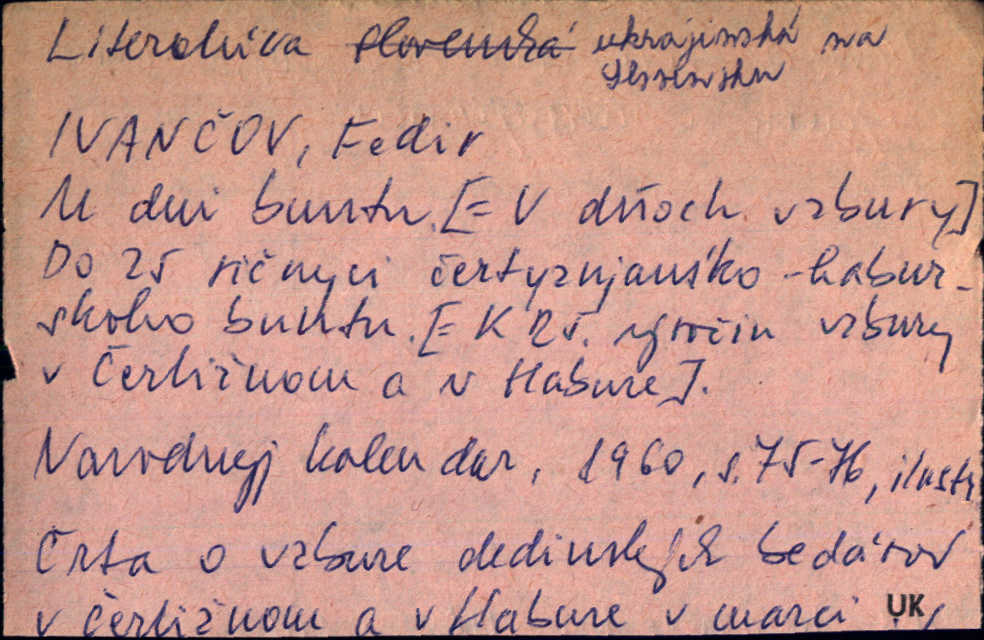 Literatúra slovenská ukrajinská na
Slovensku
IVANČOV, Fedir
U dni buntu. [= V dňoch vzbury]
Do 25 ričnyci čertyznjansko-habur-
skoho buntu. [= K 25. výročiu vzbury
v Čertižnom a v Habure].
Narodnyj kalendar, 1960, s. 75-76, ilustr
Črta o vzbure dedinských bedárov
v Čertižnom a v Habure v marci
UK